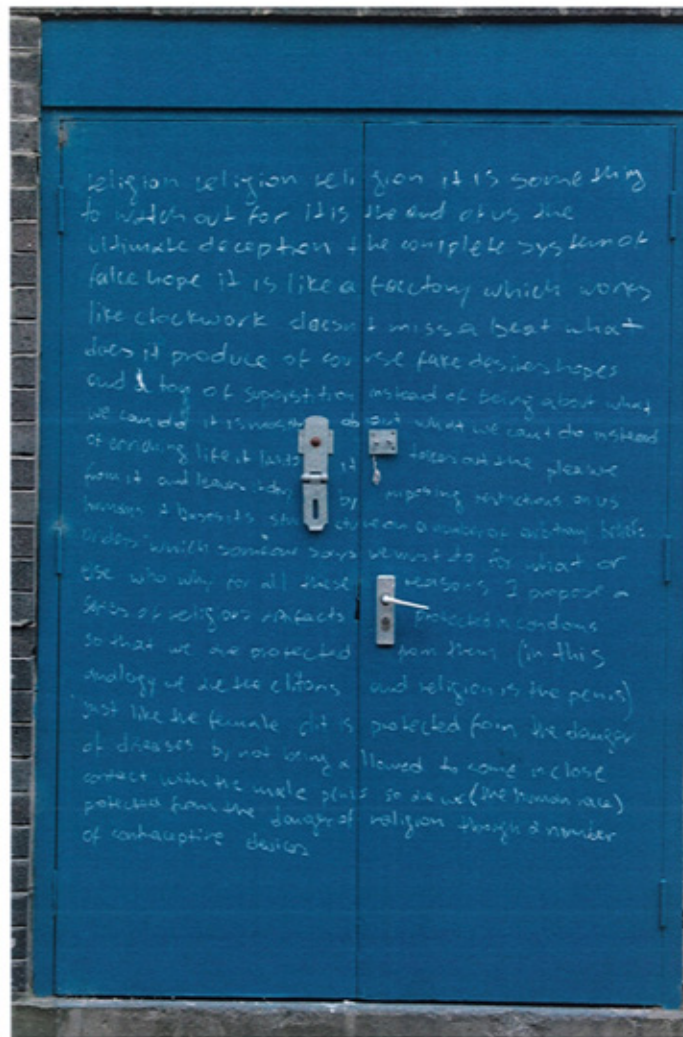 religion religion religion it is some thing
to watch out for it is the end of us the
ultimate deception the complete system of
false hope it is like a factory which works
like clockwork doesn't miss a beat what
does it produce of course fake desires hopes
and a tog of superstition instead of being about what
we can do it is about what we can't do instead
of enriching life it it takes out the pleasure
from it and leaves by imposing restrictions on us
humans it bases its structure on a number of arbitrary beliefs
orders which someone says we must do for what or
else who why for all these reasons I propose a
series of religious artifacts protected in condoms
so that we are protected from them (in this
analogy we are the clitoris and religion is the penis)
just like the female clit is protected from the danger
of diseases by not being allowed to come in close
contact with the male penis so are we (the human race)
protected from the danger of religion through a number
of contraceptive devices